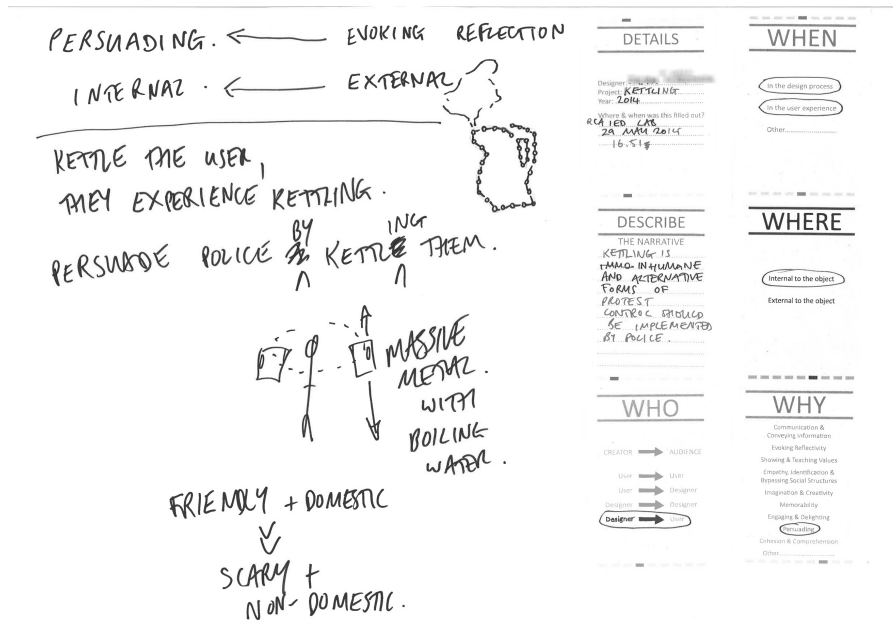 PERSUADING. ← EVOKING REFLECTION
INTERNAL . ← EXTERNAL
KETTLE THE USER,
THEY EXPERIENCE KETTLING.
BY ING
PERSUADE POLICE KETTLE THEM.
MASSIVE
METAL.
WITH
BOILING
WATER.
FRIENDLY + DOMESTIC
SCARY +
NON-DOMESTIC.
DETAILS
Designer:
Project: KETTLING
Year: 2014
Where & when was this filled out?
RCA IED LAB
29 MAY 2014
16.51
DESCRIBE
THE NARRATIVE
KETTLING IS
IMMO INHUMANE
AND ALTERNATIVE
FORMS OF
PROTEST
CONTROL SHOULD
BE IMPLEMENTED
BY POLICE.
WHO
CREATOR → AUDIENCE
User → User
User → Designer
Designer → Designer
Designer → User
WHEN
In the design process
In the user experience
Other
WHERE
Internal to the object
External to the object
WHY
Communication &
Conveying Information
Evoking Reflectivity
Showing & Teaching Values
Empathy, Identification &
Bypassing Social Structures
Imagination & Creativity
Memorability
Engaging & Delighting
Persuading
Cohesion & Comprehension
Other